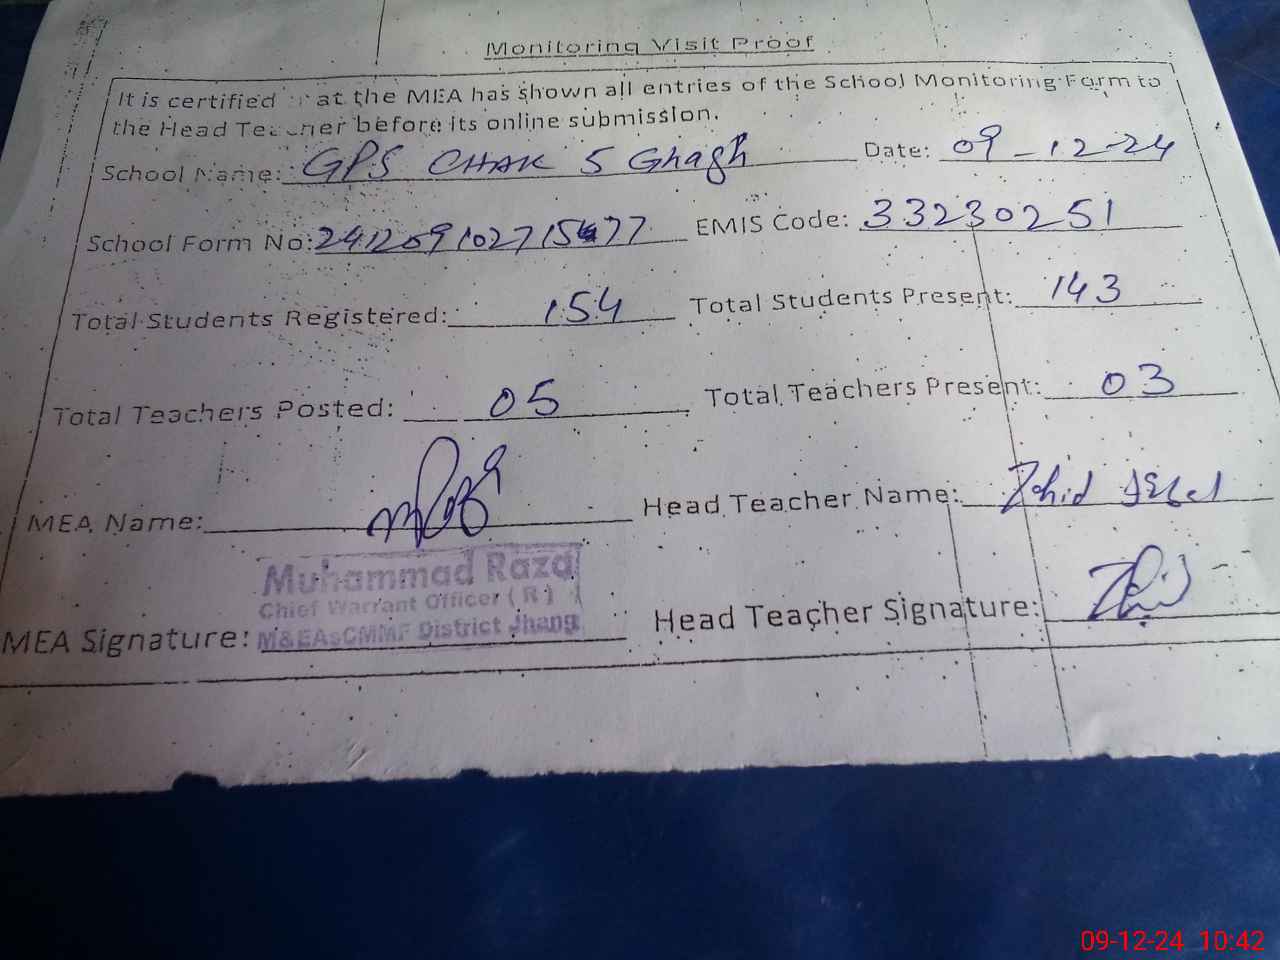 Monitoring Visit Proof
It is certified that the MEA has shown all entries of the School Monitoring Form to
the Head Teacher before its online submission.
School Name: GPS CHAK 5 Ghagh Date: 09-12-24
School Form No: 241209102715477 EMIS Code: 33230251
Total Students Registered: 154 Total Students Present: 143
Total Teachers Posted: 05 Total Teachers Present: 03
MEA Name: Head Teacher Name: Zahid
Muhammad Raza
Chief Warrant Officer (R)
M&EAsCMMF District Jhang
MEA Signature: Head Teacher Signature:
09-12-24 10:42